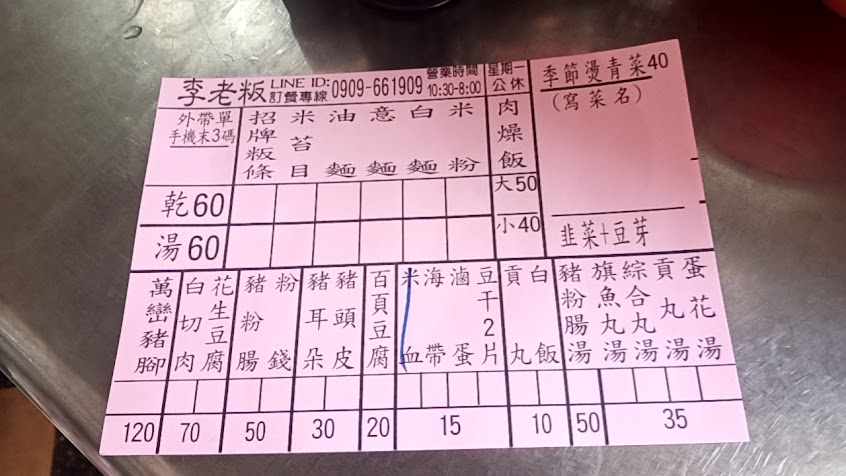 李老粄 LINE ID: 訂餐專線 0909-661909 營業時間 10:30-8:00 星期一公休
季節燙青菜40
(寫菜名)
外帶單
手機末3碼
招牌粄條 米苔目 油麵 意麵 白麵 米粉
肉燥飯
大50
小40
乾60
湯60
韭菜+豆芽
萬巒豬腳 白切肉 花生豆腐 豬粉腸 粉錢 豬耳朵 豬頭皮 百頁豆腐 米血 海帶 滷蛋 豆干2片 貢丸 白飯 豬粉腸湯 旗魚丸湯 綜合丸湯 貢丸湯 蛋花湯
120 70 50 30 20 15 10 50 35